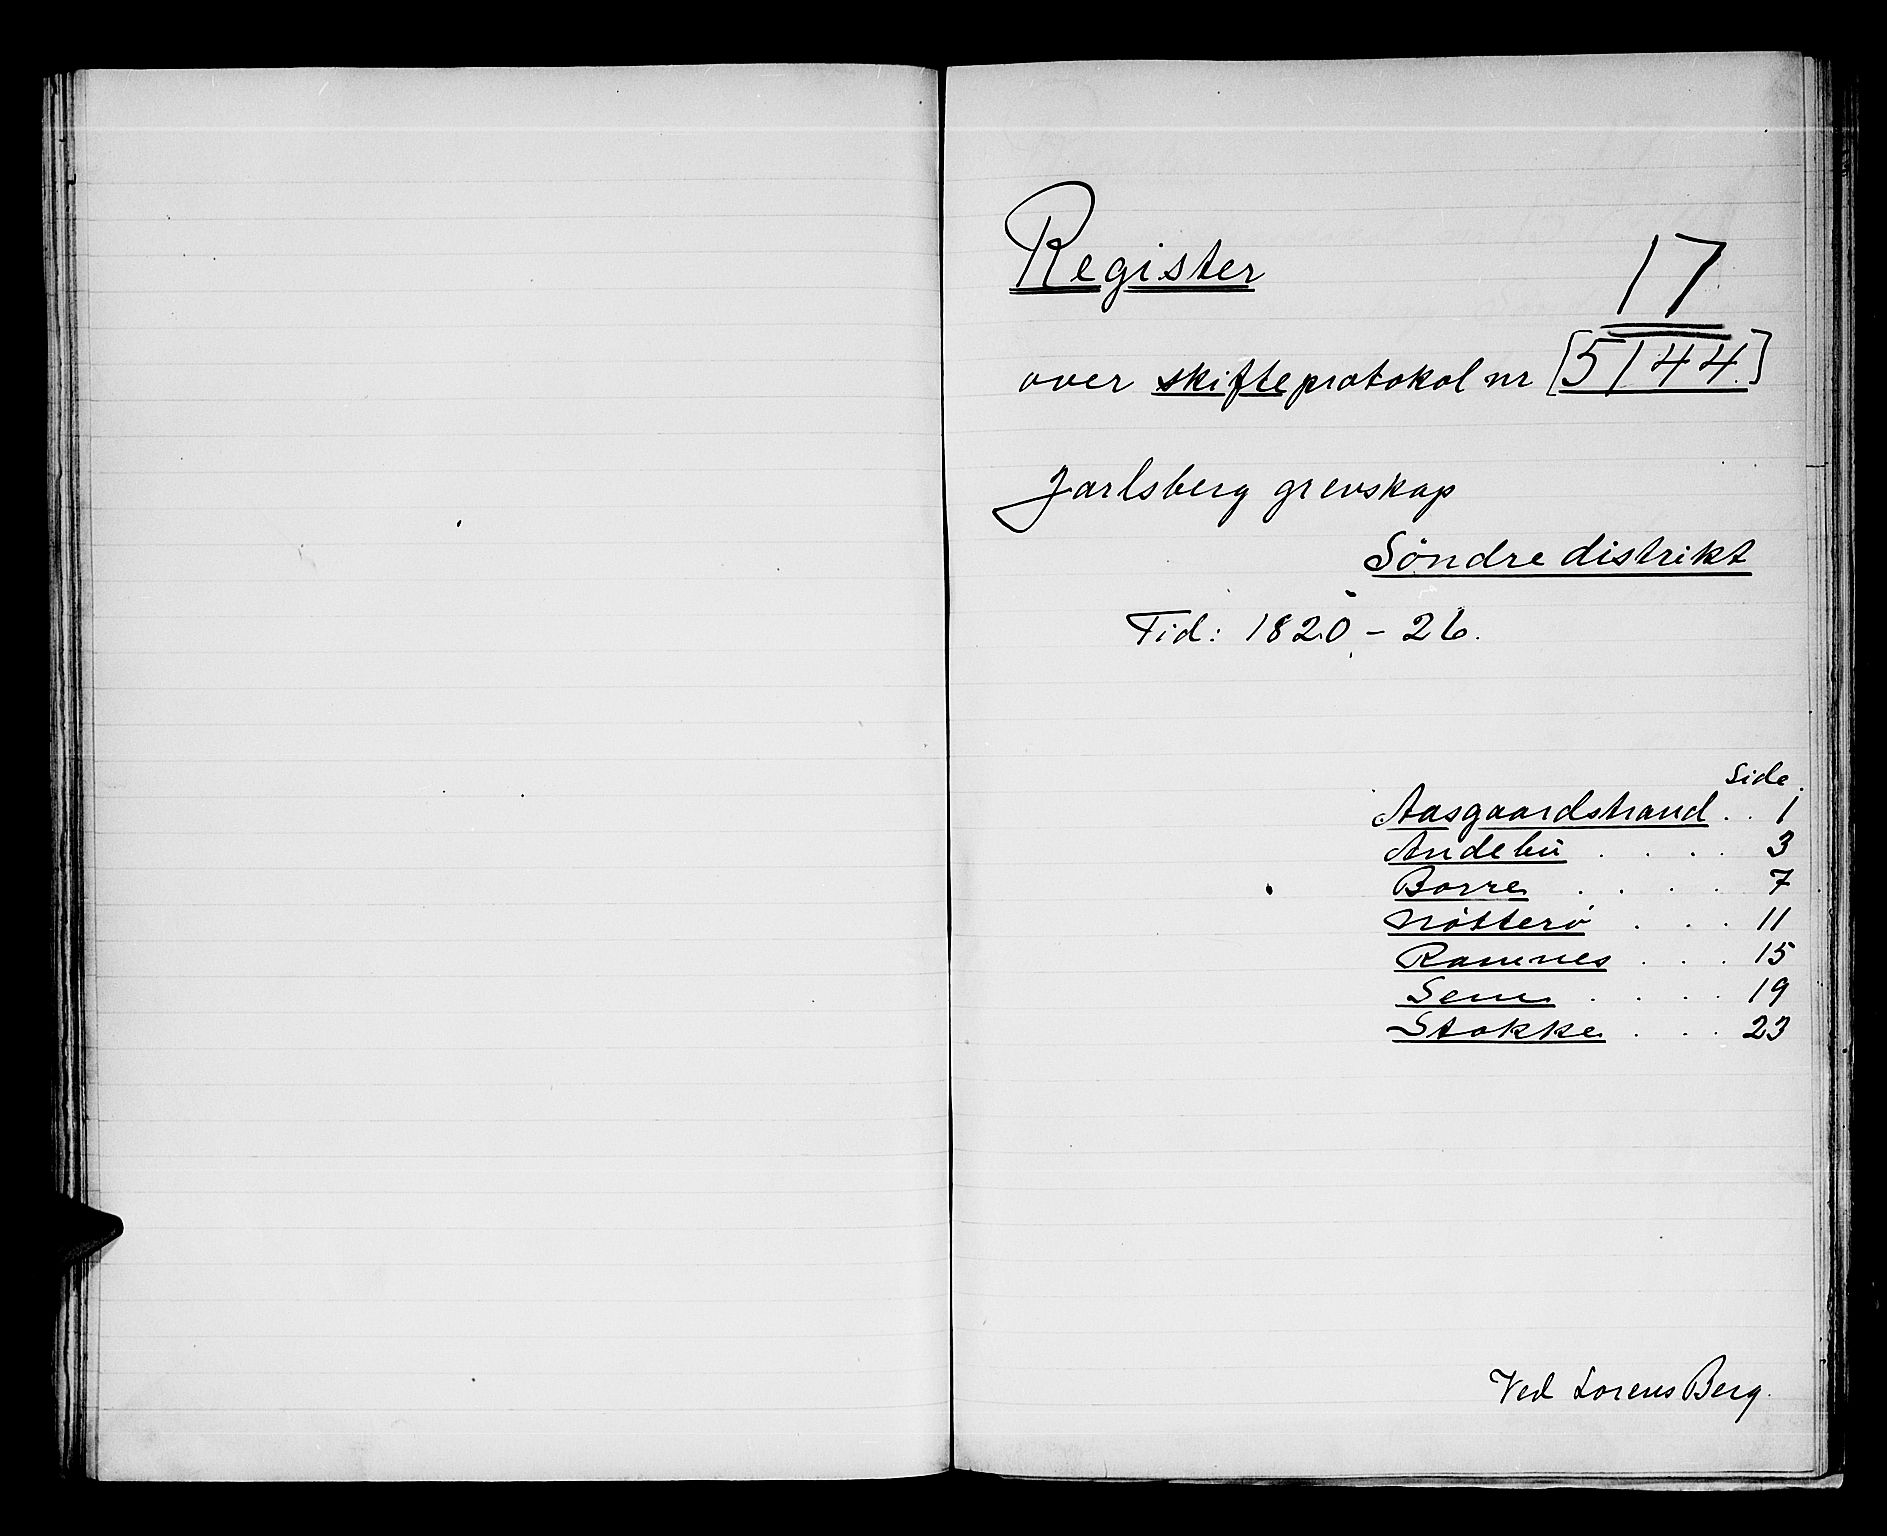 Register
17
over skifteprotokol nr [5144]
Jarlsberg grevskap
Söndre distrikt
Tid: 1820 - 26.
Side
Aasgaardstrand . . 1
Andebu . . . . 3
Borre . . . . 7
Nötterö . . . 11
Ramnes . . . 15
Sem . . . . 19
Stokke . . . 23
Ved Lorens Berg.